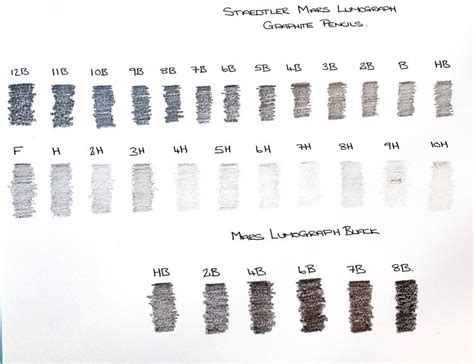 STAEDTLER MARS LUMOGRAPH
GRAPHITE PENCILS.
12B 11B 10B 9B 8B 7B 6B 5B 4B 3B 2B B HB
F H 2H 3H 4H 5H 6H 7H 8H 9H 10H
MARS LUMOGRAPH BLACK
HB 2B 4B 6B 7B 8B.